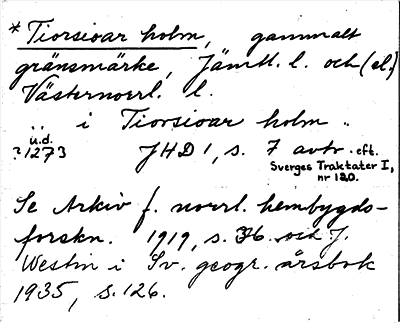 *Tiorsioar holm, gammalt
gränsmärke, Jämtl. l. och (el.)
Västernorrl. l.
.. i Tiorsioar holm ..
u.d.
?1273 JHD 1, s. 7 avtr. eft.
Sverges Traktater I,
nr 120.
Se Arkiv f. norrl. hembygds-
forskn. 1919, s. 76. och J.
Westin i Sv. geogr. årsbok
1935, s. 126.